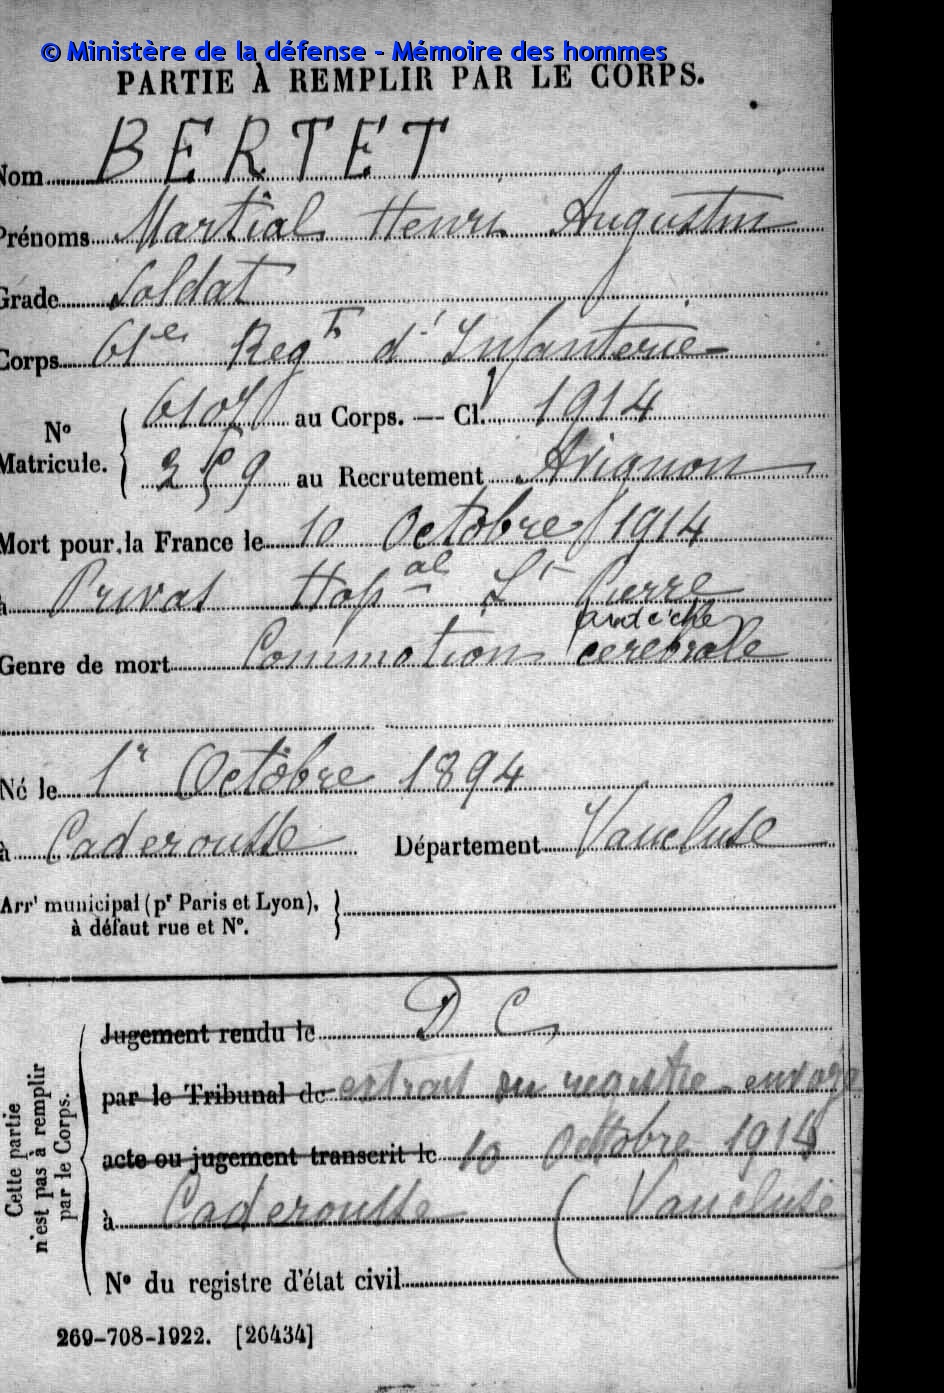 © Ministère de la défense - Mémoire des hommes
PARTIE À REMPLIR PAR LE CORPS.
Nom BERTET
Prénoms Martial Henri Augustin
Grade Soldat
Corps 61e Regt d'Infanterie
N° Matricule. { 6107 au Corps. — Cl. 1914
259 au Recrutement Avignon
Mort pour la France le 10 Octobre 1914
à Privas Hopal St Pierre
ardèche
Genre de mort Commotion cerebrale
Né le 1r Octobre 1894
à Caderousse Département Vaucluse
Arrt municipal (pr Paris et Lyon),
à défaut rue et N°.
Cette partie
n'est pas à remplir
par le Corps.
Jugement rendu le D C
par le Tribunal de extrait du registre envoyé
acte ou jugement transcrit le 10 Octobre 1914
à Caderousse (Vaucluse)
N° du registre d'état civil
269-708-1922. [26434]